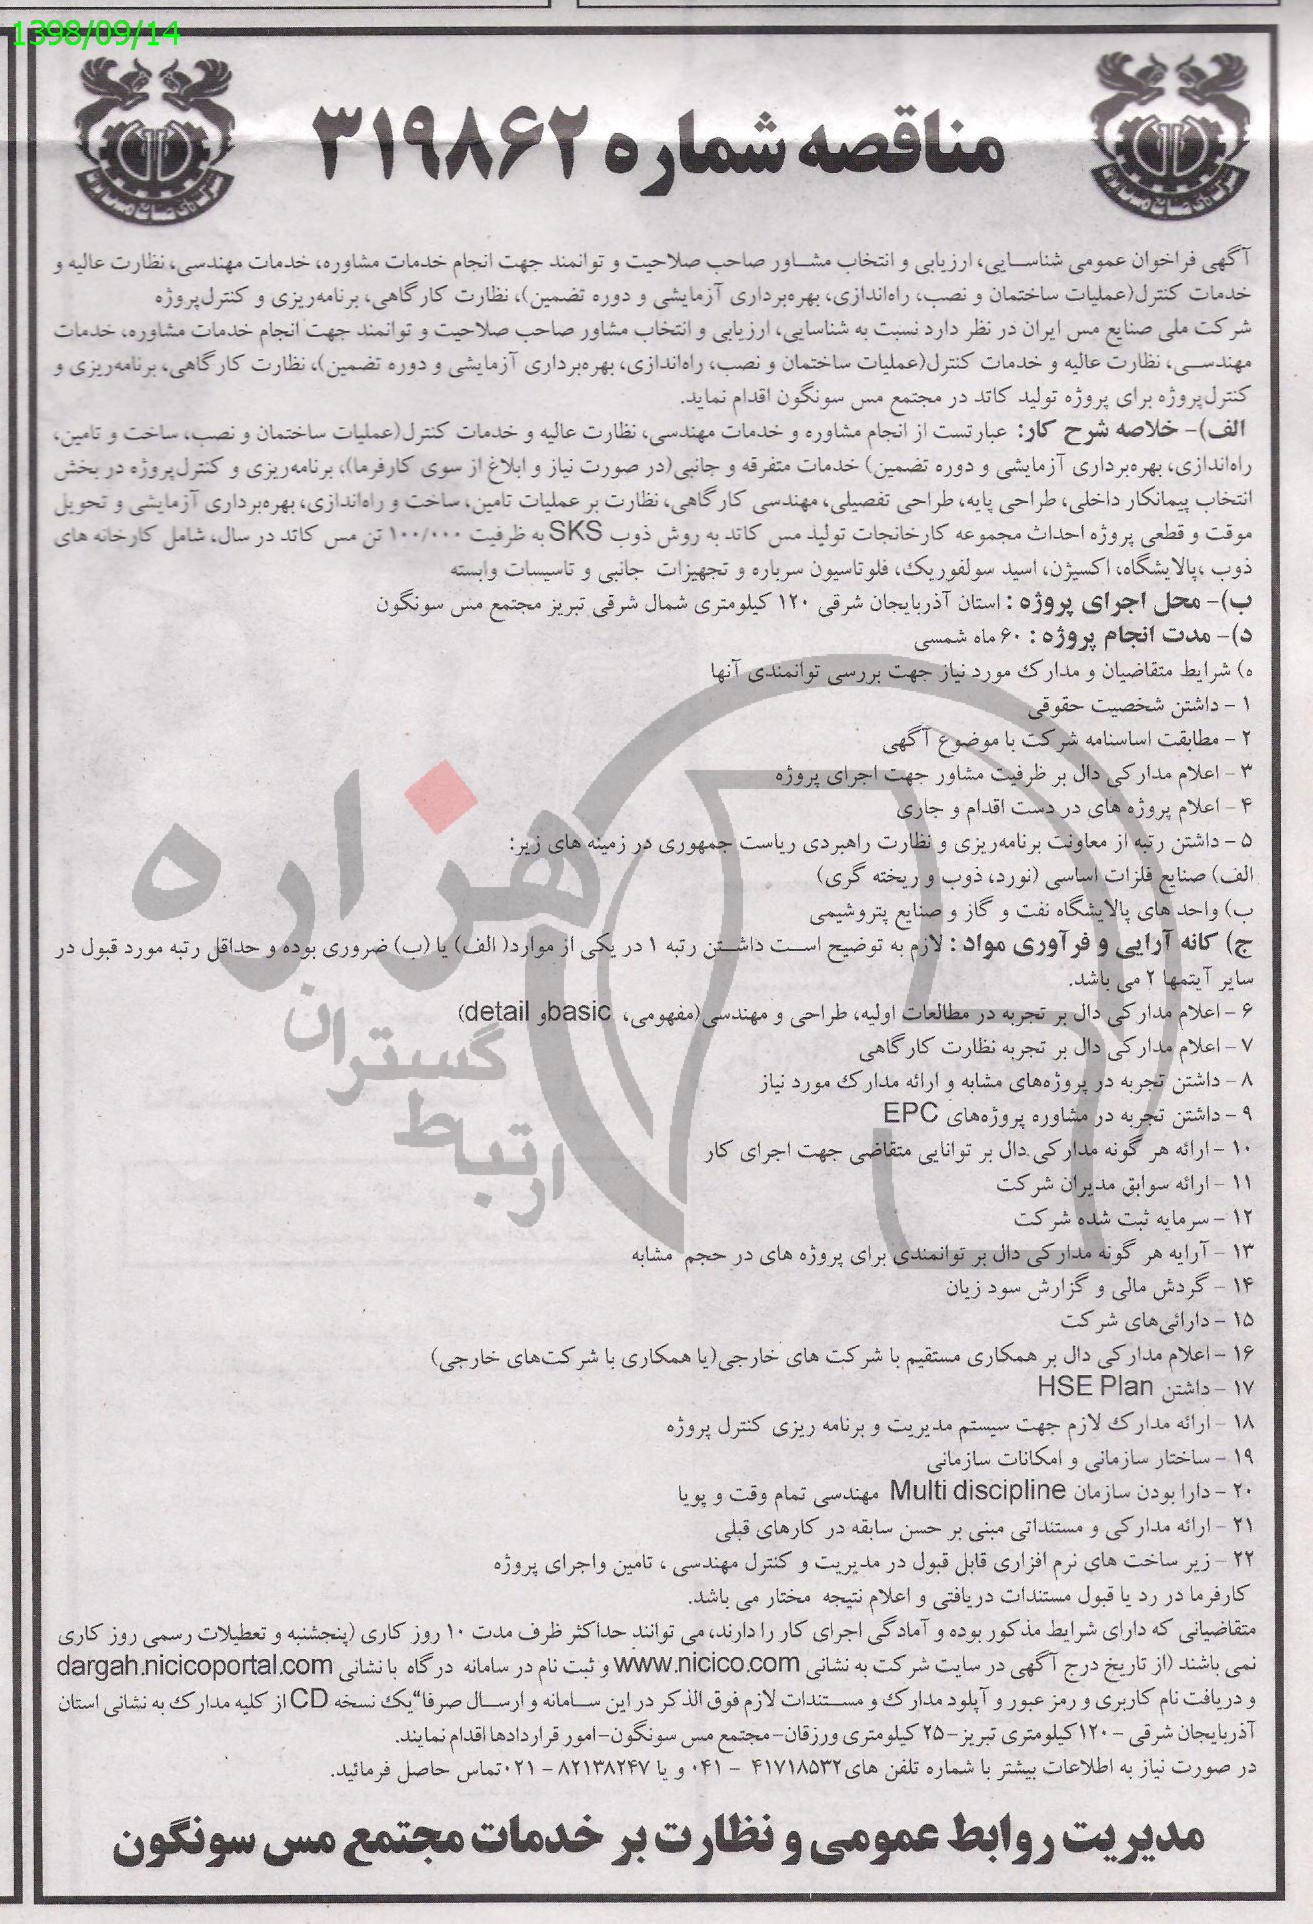 1398/09/14
مناقصه شماره ۳۱۹۸۶۲
آگهی فراخوان عمومی شناسایی، ارزیابی و انتخاب مشاور صاحب صلاحیت و توانمند جهت انجام خدمات مشاوره، خدمات مهندسی، نظارت عالیه و
خدمات کنترل(عملیات ساختمان و نصب، راه‌اندازی، بهره‌برداری آزمایشی و دوره تضمین)، نظارت کارگاهی، برنامه‌ریزی و کنترل‌پروژه
شرکت ملی صنایع مس ایران در نظر دارد نسبت به شناسایی، ارزیابی و انتخاب مشاور صاحب صلاحیت و توانمند جهت انجام خدمات مشاوره، خدمات
مهندسی، نظارت عالیه و خدمات کنترل(عملیات ساختمان و نصب، راه‌اندازی، بهره‌برداری آزمایشی و دوره تضمین)، نظارت کارگاهی، برنامه‌ریزی و
کنترل‌پروژه برای پروژه تولید کاتد در مجتمع مس سونگون اقدام نماید.
الف)- خلاصه شرح کار: عبارتست از انجام مشاوره و خدمات مهندسی، نظارت عالیه و خدمات کنترل(عملیات ساختمان و نصب، ساخت و تامین،
راه‌اندازی، بهره‌برداری آزمایشی و دوره تضمین) خدمات متفرقه و جانبی(در صورت نیاز و ابلاغ از سوی کارفرما)، برنامه‌ریزی و کنترل‌پروژه در بخش
انتخاب پیمانکار داخلی، طراحی پایه، طراحی تفصیلی، مهندسی کارگاهی، نظارت بر عملیات تامین، ساخت و راه‌اندازی، بهره‌برداری آزمایشی و تحویل
موقت و قطعی پروژه احداث مجموعه کارخانجات تولید مس کاتد به روش ذوب SKS به ظرفیت ۱۰۰/۰۰۰ تن مس کاتد در سال، شامل کارخانه های
ذوب ،پالایشگاه، اکسیژن، اسید سولفوریک، فلوتاسیون سرباره و تجهیزات جانبی و تاسیسات وابسته
ب)- محل اجرای پروژه : استان آذربایجان شرقی ۱۲۰ کیلومتری شمال شرقی تبریز مجتمع مس سونگون
د)- مدت انجام پروژه : ۶۰ ماه شمسی
ه) شرایط متقاضیان و مدارک مورد نیاز جهت بررسی توانمندی آنها
۱ - داشتن شخصیت حقوقی
۲ - مطابقت اساسنامه شرکت با موضوع آگهی
۳ - اعلام مدارکی دال بر ظرفیت مشاور جهت اجرای پروژه
۴ - اعلام پروژه های در دست اقدام و جاری
۵ - داشتن رتبه از معاونت برنامه‌ریزی و نظارت راهبردی ریاست جمهوری در زمینه های زیر:
الف) صنایع فلزات اساسی (نورد، ذوب و ریخته گری)
ب) واحد های پالایشگاه نفت و گاز و صنایع پتروشیمی
ج) کانه آرایی و فرآوری مواد : لازم به توضیح است داشتن رتبه ۱ در یکی از موارد( الف) یا (ب) ضروری بوده و حداقل رتبه مورد قبول در
سایر آیتمها ۲ می باشد.
۶ - اعلام مدارکی دال بر تجربه در مطالعات اولیه، طراحی و مهندسی(مفهومی، basic و detail)
۷ - اعلام مدارکی دال بر تجربه نظارت کارگاهی
۸ - داشتن تجربه در پروژه‌های مشابه و ارائه مدارک مورد نیاز
۹ - داشتن تجربه در مشاوره پروژه‌های EPC
۱۰ - ارائه هر گونه مدارکی دال بر توانایی متقاضی جهت اجرای کار
۱۱ - ارائه سوابق مدیران شرکت
۱۲ - سرمایه ثبت شده شرکت
۱۳ - آرایه هر گونه مدارکی دال بر توانمندی برای پروژه های در حجم مشابه
۱۴ - گردش مالی و گزارش سود زیان
۱۵ - دارائی‌های شرکت
۱۶ - اعلام مدارکی دال بر همکاری مستقیم با شرکت های خارجی(یا همکاری با شرکت‌های خارجی)
۱۷ - داشتن HSE Plan
۱۸ - ارائه مدارک لازم جهت سیستم مدیریت و برنامه ریزی کنترل پروژه
۱۹ - ساختار سازمانی و امکانات سازمانی
۲۰ - دارا بودن سازمان Multi discipline مهندسی تمام وقت و پویا
۲۱ - ارائه مدارکی و مستنداتی مبنی بر حسن سابقه در کارهای قبلی
۲۲ - زیر ساخت های نرم افزاری قابل قبول در مدیریت و کنترل مهندسی ، تامین واجرای پروژه
کارفرما در رد یا قبول مستندات دریافتی و اعلام نتیجه مختار می باشد.
متقاضیانی که دارای شرایط مذکور بوده و آمادگی اجرای کار را دارند، می توانند حداکثر ظرف مدت ۱۰ روز کاری (پنجشنبه و تعطیلات رسمی روز کاری
نمی باشند (از تاریخ درج آگهی در سایت شرکت به نشانی www.nicico.com و ثبت نام در سامانه درگاه با نشانی dargah.nicicoportal.com
و دریافت نام کاربری و رمز عبور و آپلود مدارک و مستندات لازم فوق الذکر در این سامانه و ارسال صرفا“یک نسخه CD از کلیه مدارک به نشانی استان
آذربایجان شرقی - ۱۲۰کیلومتری تبریز-۲۵ کیلومتری ورزقان-مجتمع مس سونگون-امور قراردادها اقدام نمایند.
در صورت نیاز به اطلاعات بیشتر با شماره تلفن های۴۱۷۱۸۵۳۲ - ۰۴۱ و یا ۸۲۱۳۸۲۴۷ - ۰۲۱تماس حاصل فرمائید.
مدیریت روابط عمومی و نظارت بر خدمات مجتمع مس سونگون
هزاره
گستران
ارتباط